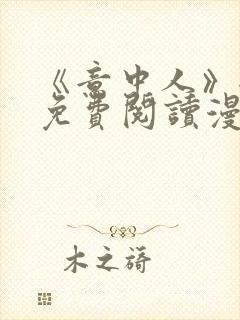 《意中人》
免費閱讀漫
木之謠